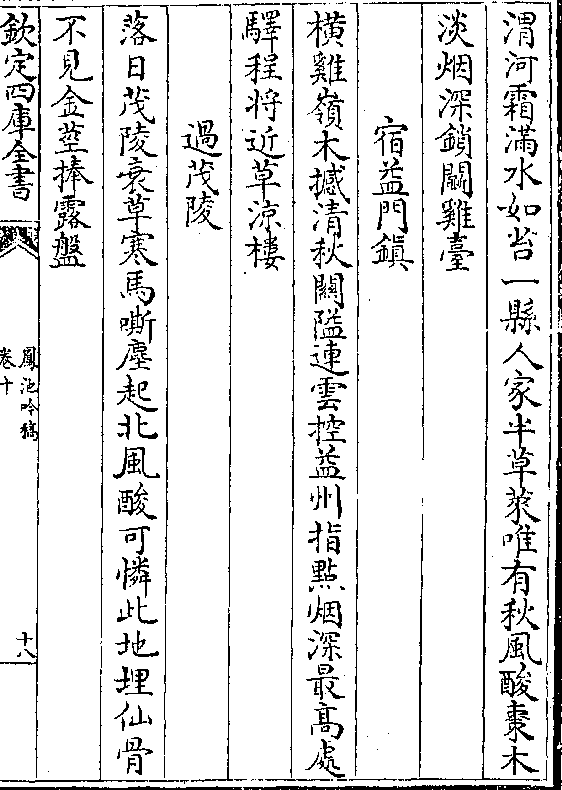 渭河霜滿水如苔一縣人家半草萊唯有秋風酸棗木
淡烟深鎖鬭雞臺
宿益門鎮
橫雞嶺木撼清秋關隘連雲控益州指點烟深最髙處
驛程将近草涼樓
過茂陵
落日茂陵衰草寒馬嘶塵起北風酸可憐此地埋仙骨
不見金莖捧露盤
欽定四庫全書
鳳池吟稿
卷十
十八